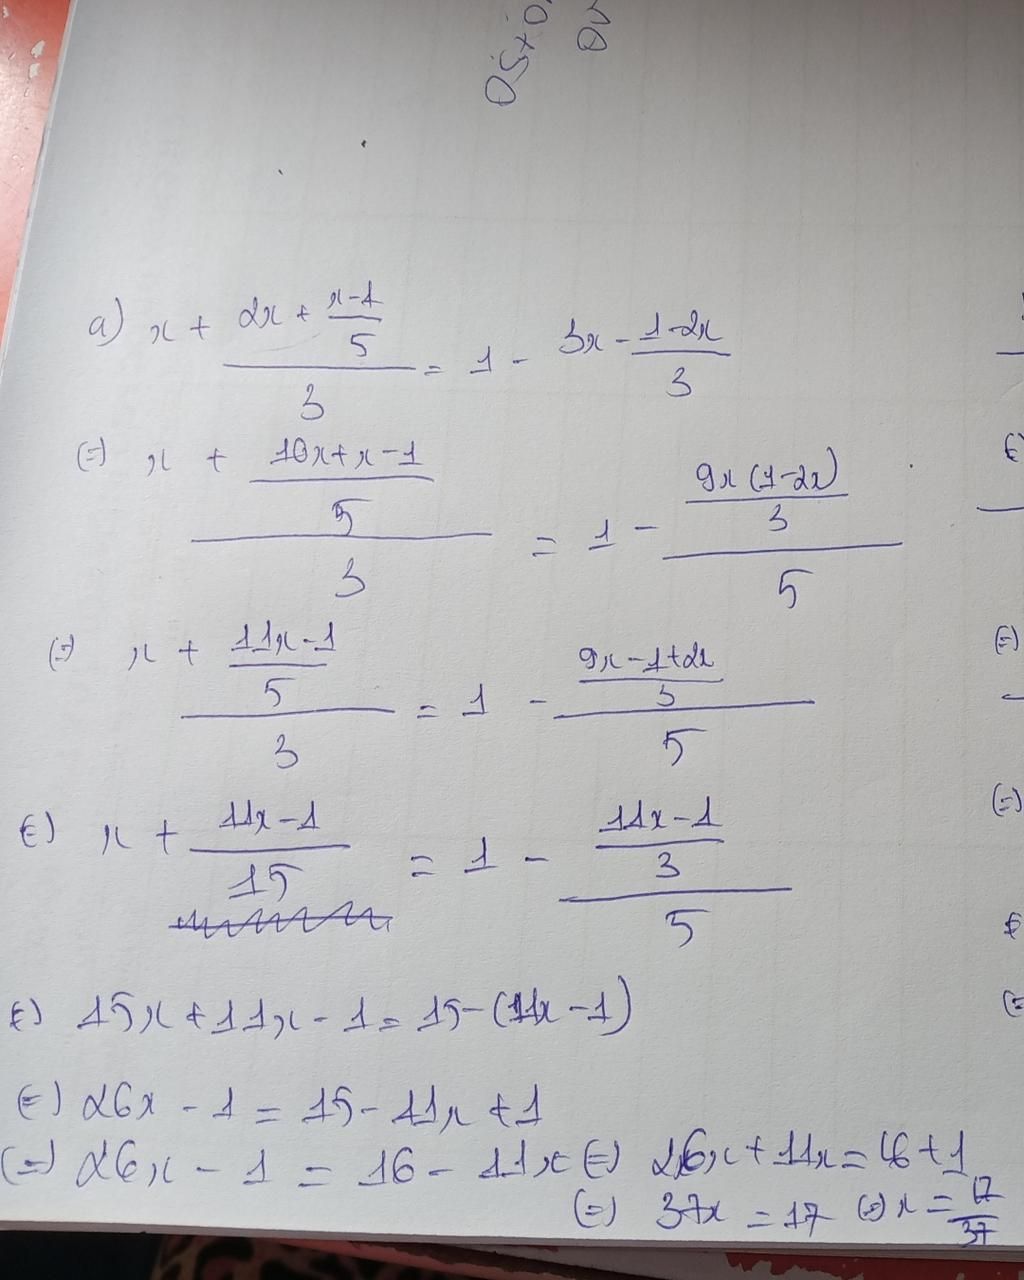 a) x + (2x + (x-1)/5)/3 = 1 - 3x - (1-2x)/3
(=) x + ((10x+x-1)/5)/3 = 1 - ((9x(1-2x))/3)/5
(=) x + ((11x-1)/5)/3 = 1 - ((9x-1+2x)/3)/5
(=) x + (11x-1)/15 = 1 - ((11x-1)/3)/5
(=) 15x + 11x - 1 = 15-(11x-1)
(=) 26x - 1 = 15 - 11x + 1
(=) 26x - 1 = 16 - 11x (=) 26x + 11x = 16 + 1
(=) 37x = 17 (=) x = 17/37